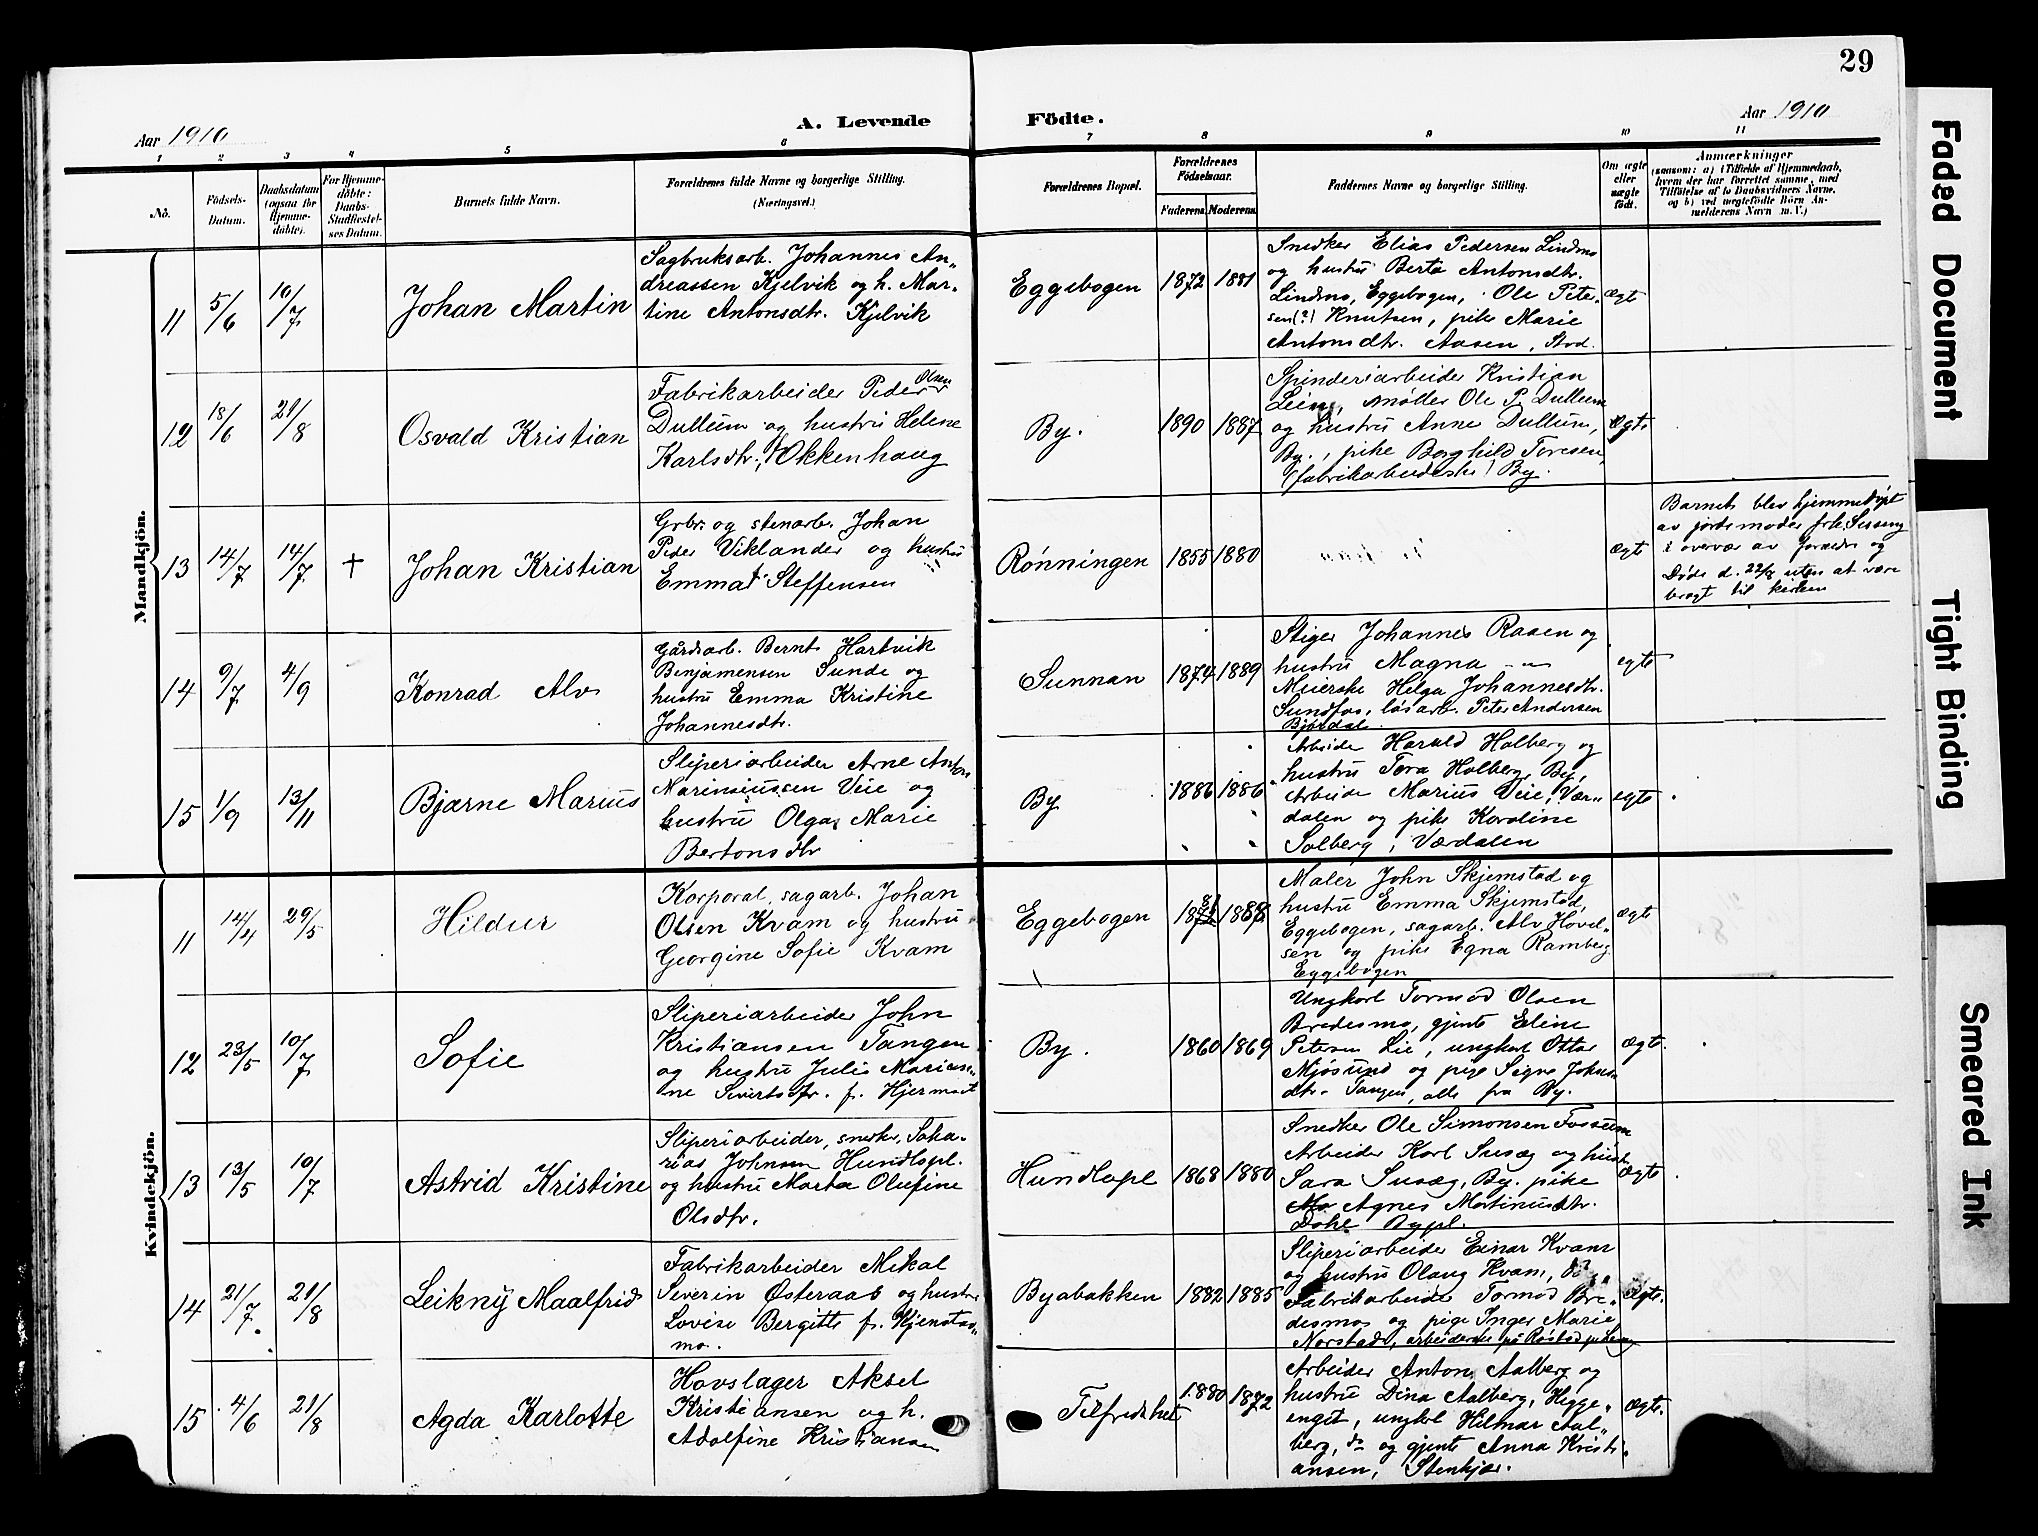 29
Aar 1910
A. Levende
Födte.
Aar 1910
1 2 3 4 5 6 7 8 9 10 11
No.
Födsels-
Datum.
Daabsdatum
(ogsaa for
Hjemme-
döbte).
For Hjemme-
döbte:
Daabs-
Stadfæstel-
ses Datum.
Barnets fulde Navn.
Forældrenes fulde Navne og borgerlige Stilling.
(Næringsvei.)
Forældrenes Bopæl.
Forældrenes
Födselsaar.
Faderens. Moderens.
Faddernes Navne og borgerlige Stilling.
Om ægte
eller
uægte
födt.
Anmærkninger
(saasom: a) i Tilfælde af Hjemmedaab,
hvem der har forrettet samme, med
Tilföielse af to Daabsvidners Navne,
og b) ved uægtefödte Börn An-
melderens Navn m. V.)
Mandkjön.
11
5/6
10/7
Johan Martin
Sagbruksarb. Johannes An-
dreassen Kjelvik og h. Mar-
tine Antonsdtr. Kjelvik
Eggebogen
1872 1881
Snedker Elias Pedersen Lindmo
og hustru Berta Antonsdtr.
Lindmo, Eggebogen, Ole Peter-
sen(?) Knutsen, pike Marie
Antonsdtr. Aasen, Stod.
ægte
12
18/6
21/8
Osvald Kristian
Fabrikarbeider Peder Olsen
Dullum og hustru Helene
Karlsdtr. Okkenhaug
By.
1890 1887
Spinderiarbeider Kristian
Lein, Møller Ole P. Dullum
og hustru Anne Dullum,
By., pike Borghild Toresen,
(fabrikarbeiderske) By.
Ægte
13
14/7
14/7
†
Johan Kristian
Grbr. og stenarb. Johan
Peder Viklander og hustru
Emma Steffensen
Rønningen
1855 1880
ægte
Barnet blev hjemmedøpt
av jordmoder frk.
i overvær av foreldre og
Døde d. 22/8 uten at være
bragt til kirken
14
9/7
4/9
Konrad Alv
Gårdsarb. Bernt Hartvik
Benjaminsen Sunde og
hustru Emma Kristine
Johannesdtr.
Sunnan
1874 1889
Stiger Johannes Rasen og
hustru Magna -"-
Meierske Helga Johannesdtr.
Sundfos, løsarb. Peter Andersen
Bjørdal.
egte
15
1/9
13/11
Bjarne Marius
Sliperiarbeider Arne Anton
Marinsiussen Veie og
hustru Olga Marie
Bertonsdtr
By
1886 1886
Arbeider Harald Halberg og
hustru Tora Holberg, By,
Arbeider Marius Veie, Vær-
dalen og pike Karoline
Solberg, Værdalen
egte
Kvindekjön.
11
14/4
29/5
Hildur
Korporal, sagarb. Johan
Olsen Kvam og hustru
Georgine Sofie Kvam
Eggebogen
Maler John Skjemstad og
hustru Emma Skjemstad,
Eggebogen, sagarb. Alv Hovel-
sen og pike Egna Ramberg
Eggebogen
ægte
12
23/5
10/7
Sofie
Sliperiarbeider John
Kristiansen Tangen
og hustru Julie Marian-
ne Sivertsdtr. f. Hjermost
By.
1860 1869
Ungkarl Tormod Olsen
Bredesmo, gjente Eline
Petersen Lie, ungkarl Ottar
Mjøsund og pige Signe Johns-
dtr. Tangen, alle fra By.
ægte.
13
13/5
10/7
Astrid Kristine
Sliperiarbeider, snedker, Saka-
rias Johnsen Hundlopl.
og hustru Marta Olufine
Olsdtr.
Hundlopl
1868 1880
Snedker Ole Simonsen Fossum
Arbeider Karl Susæg og hust.
Sara Susæg, By. pike
Agnes Martinusdtr.
Dahl Bypl.
ægte
14
21/7
21/8
Leikny Maalfrid
Fabrikarbeider Mikal
Severin Østeraas og hustru
Lovise Bergitte f. Kjenstad-
mo.
Byabakken
1882 1885
Sliperiarbeider Einar Kvam
og hustru Olaug Kvam, do,
Fabrikarbeider Tormod Bre-
desmo og pige Inger Marie
Norstad, arbeiderske på
Ægte.
15
4/6
21/8
Agda Karlotte
Hovslager Aksel
Kristiansen og h.
Adolfine Kristiansen
Tilfredshet
1880 1872
Arbeider Anton Aalberg og
hustru Dina Aalberg, Hegge-
enget, ungkl Hilmar Aal-
berg, do og gjente Anna Kristi-
ansen, Stenkjær.
Ægte.
Faded Document
Tight Binding
Smeared Ink